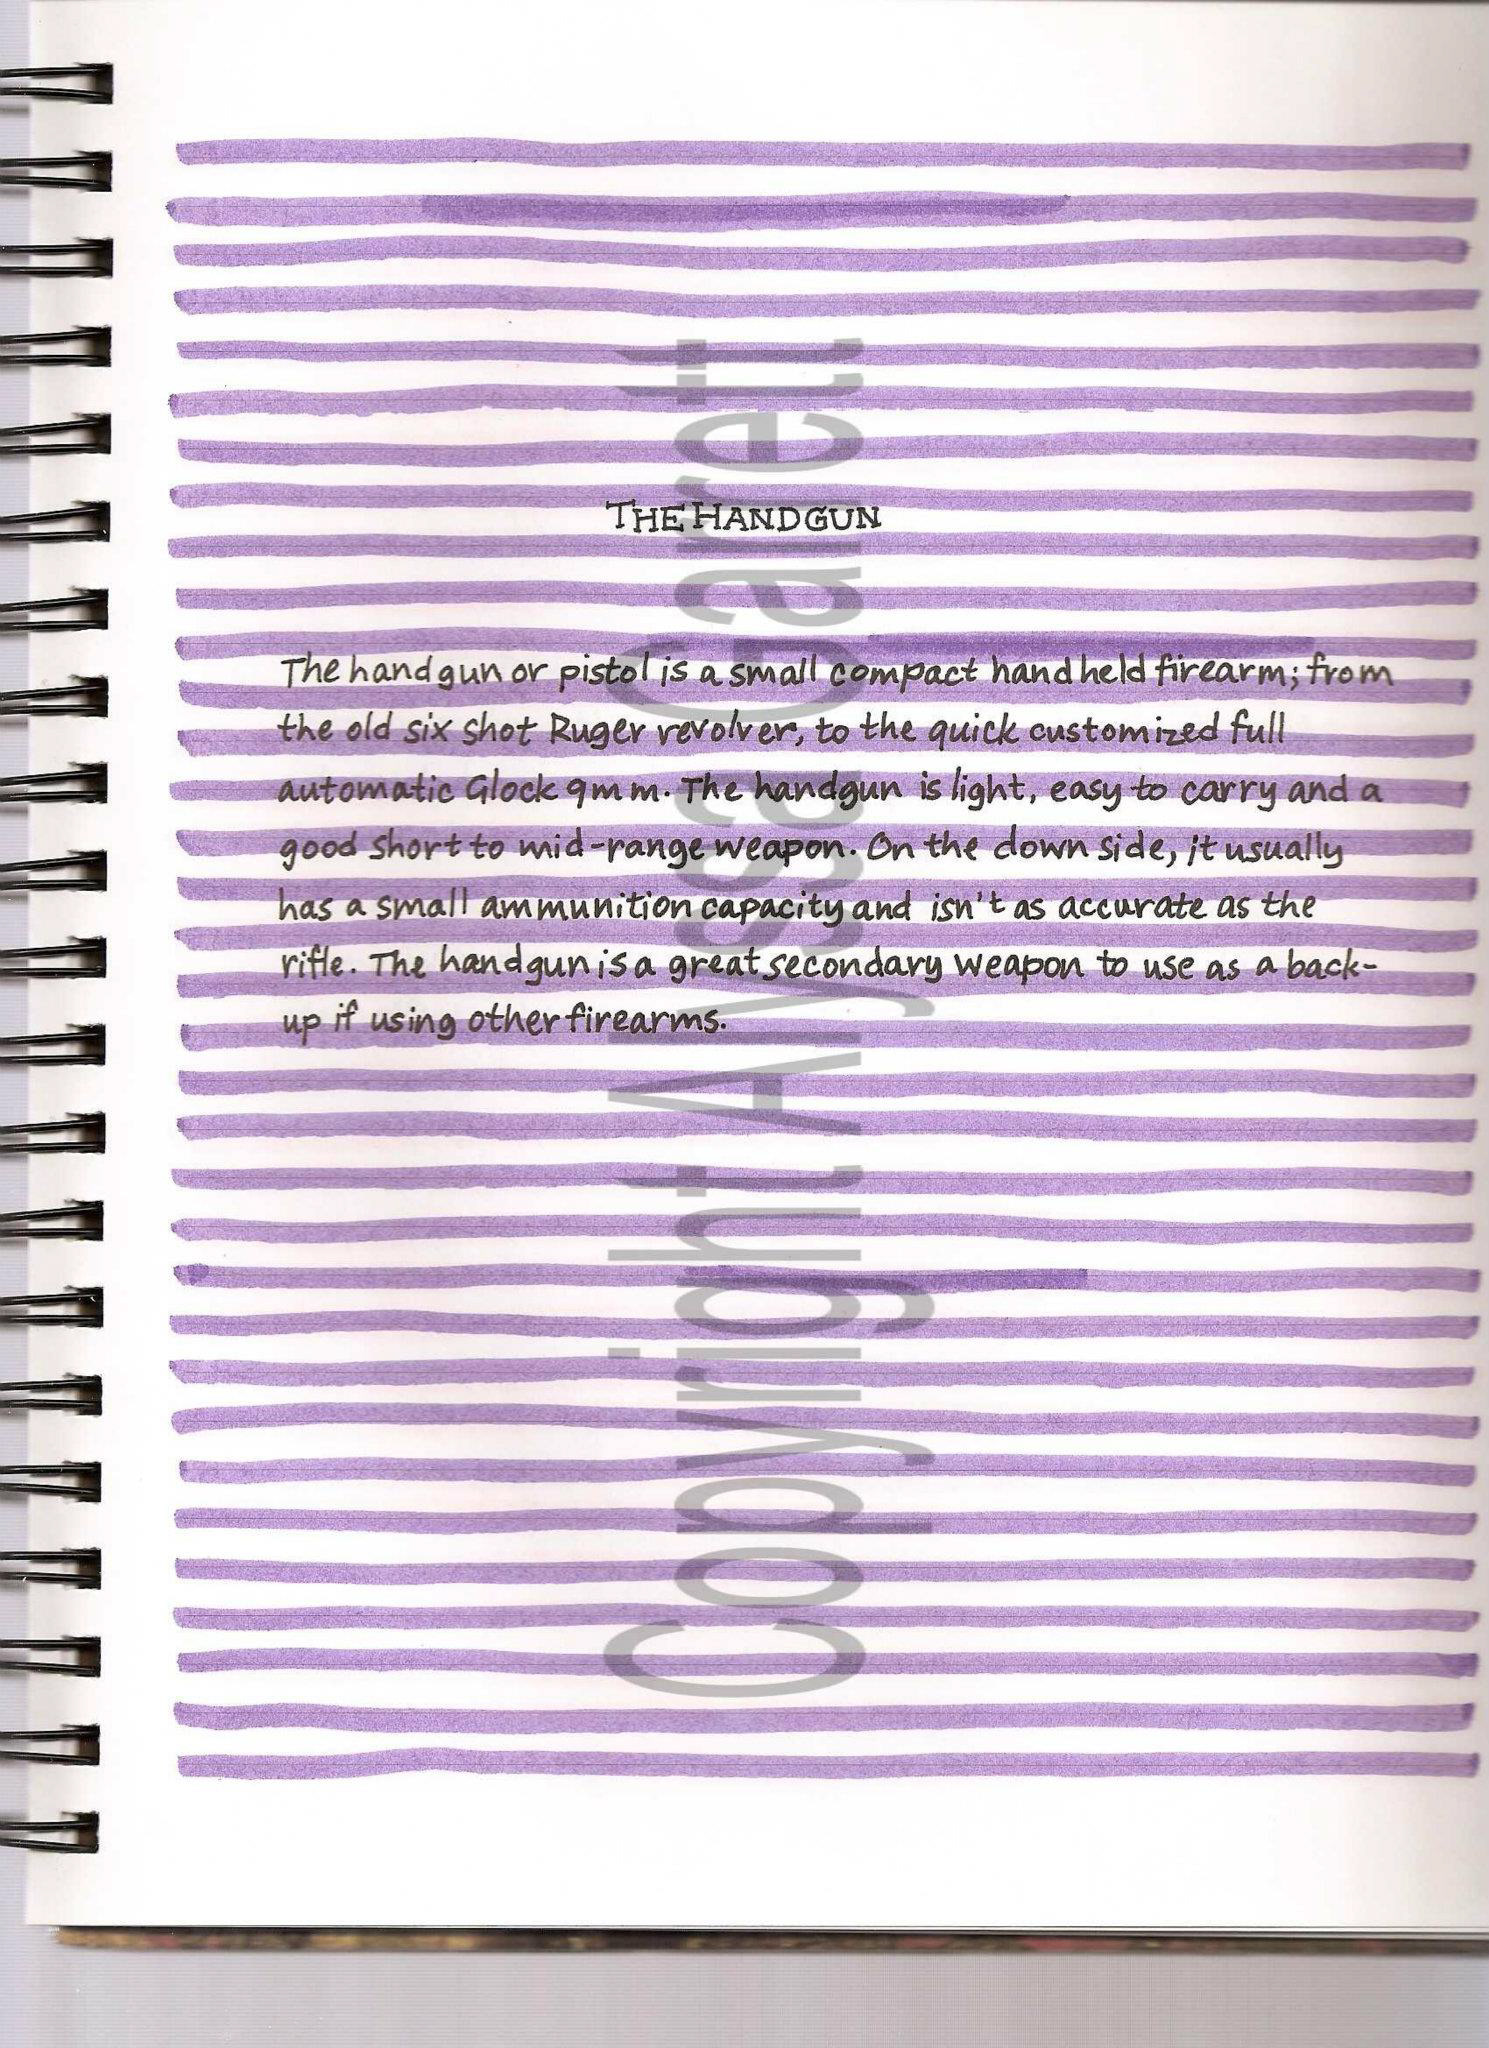 THE HANDGUN
The handgun or pistol is a small compact handheld firearm; from
the old six shot Ruger revolver, to the quick customized full
automatic Glock 9mm. The handgun is light, easy to carry and a
good short to mid-range weapon. On the down side, it usually
has a small ammunition capacity and isn't as accurate as the
rifle. The handgun is a great secondary weapon to use as a back-
up if using other firearms.
Copyright Alyssa Garet